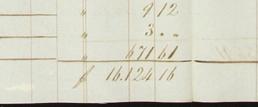 " 9 12
" 3 . .
" 671 61
f 16.124 16